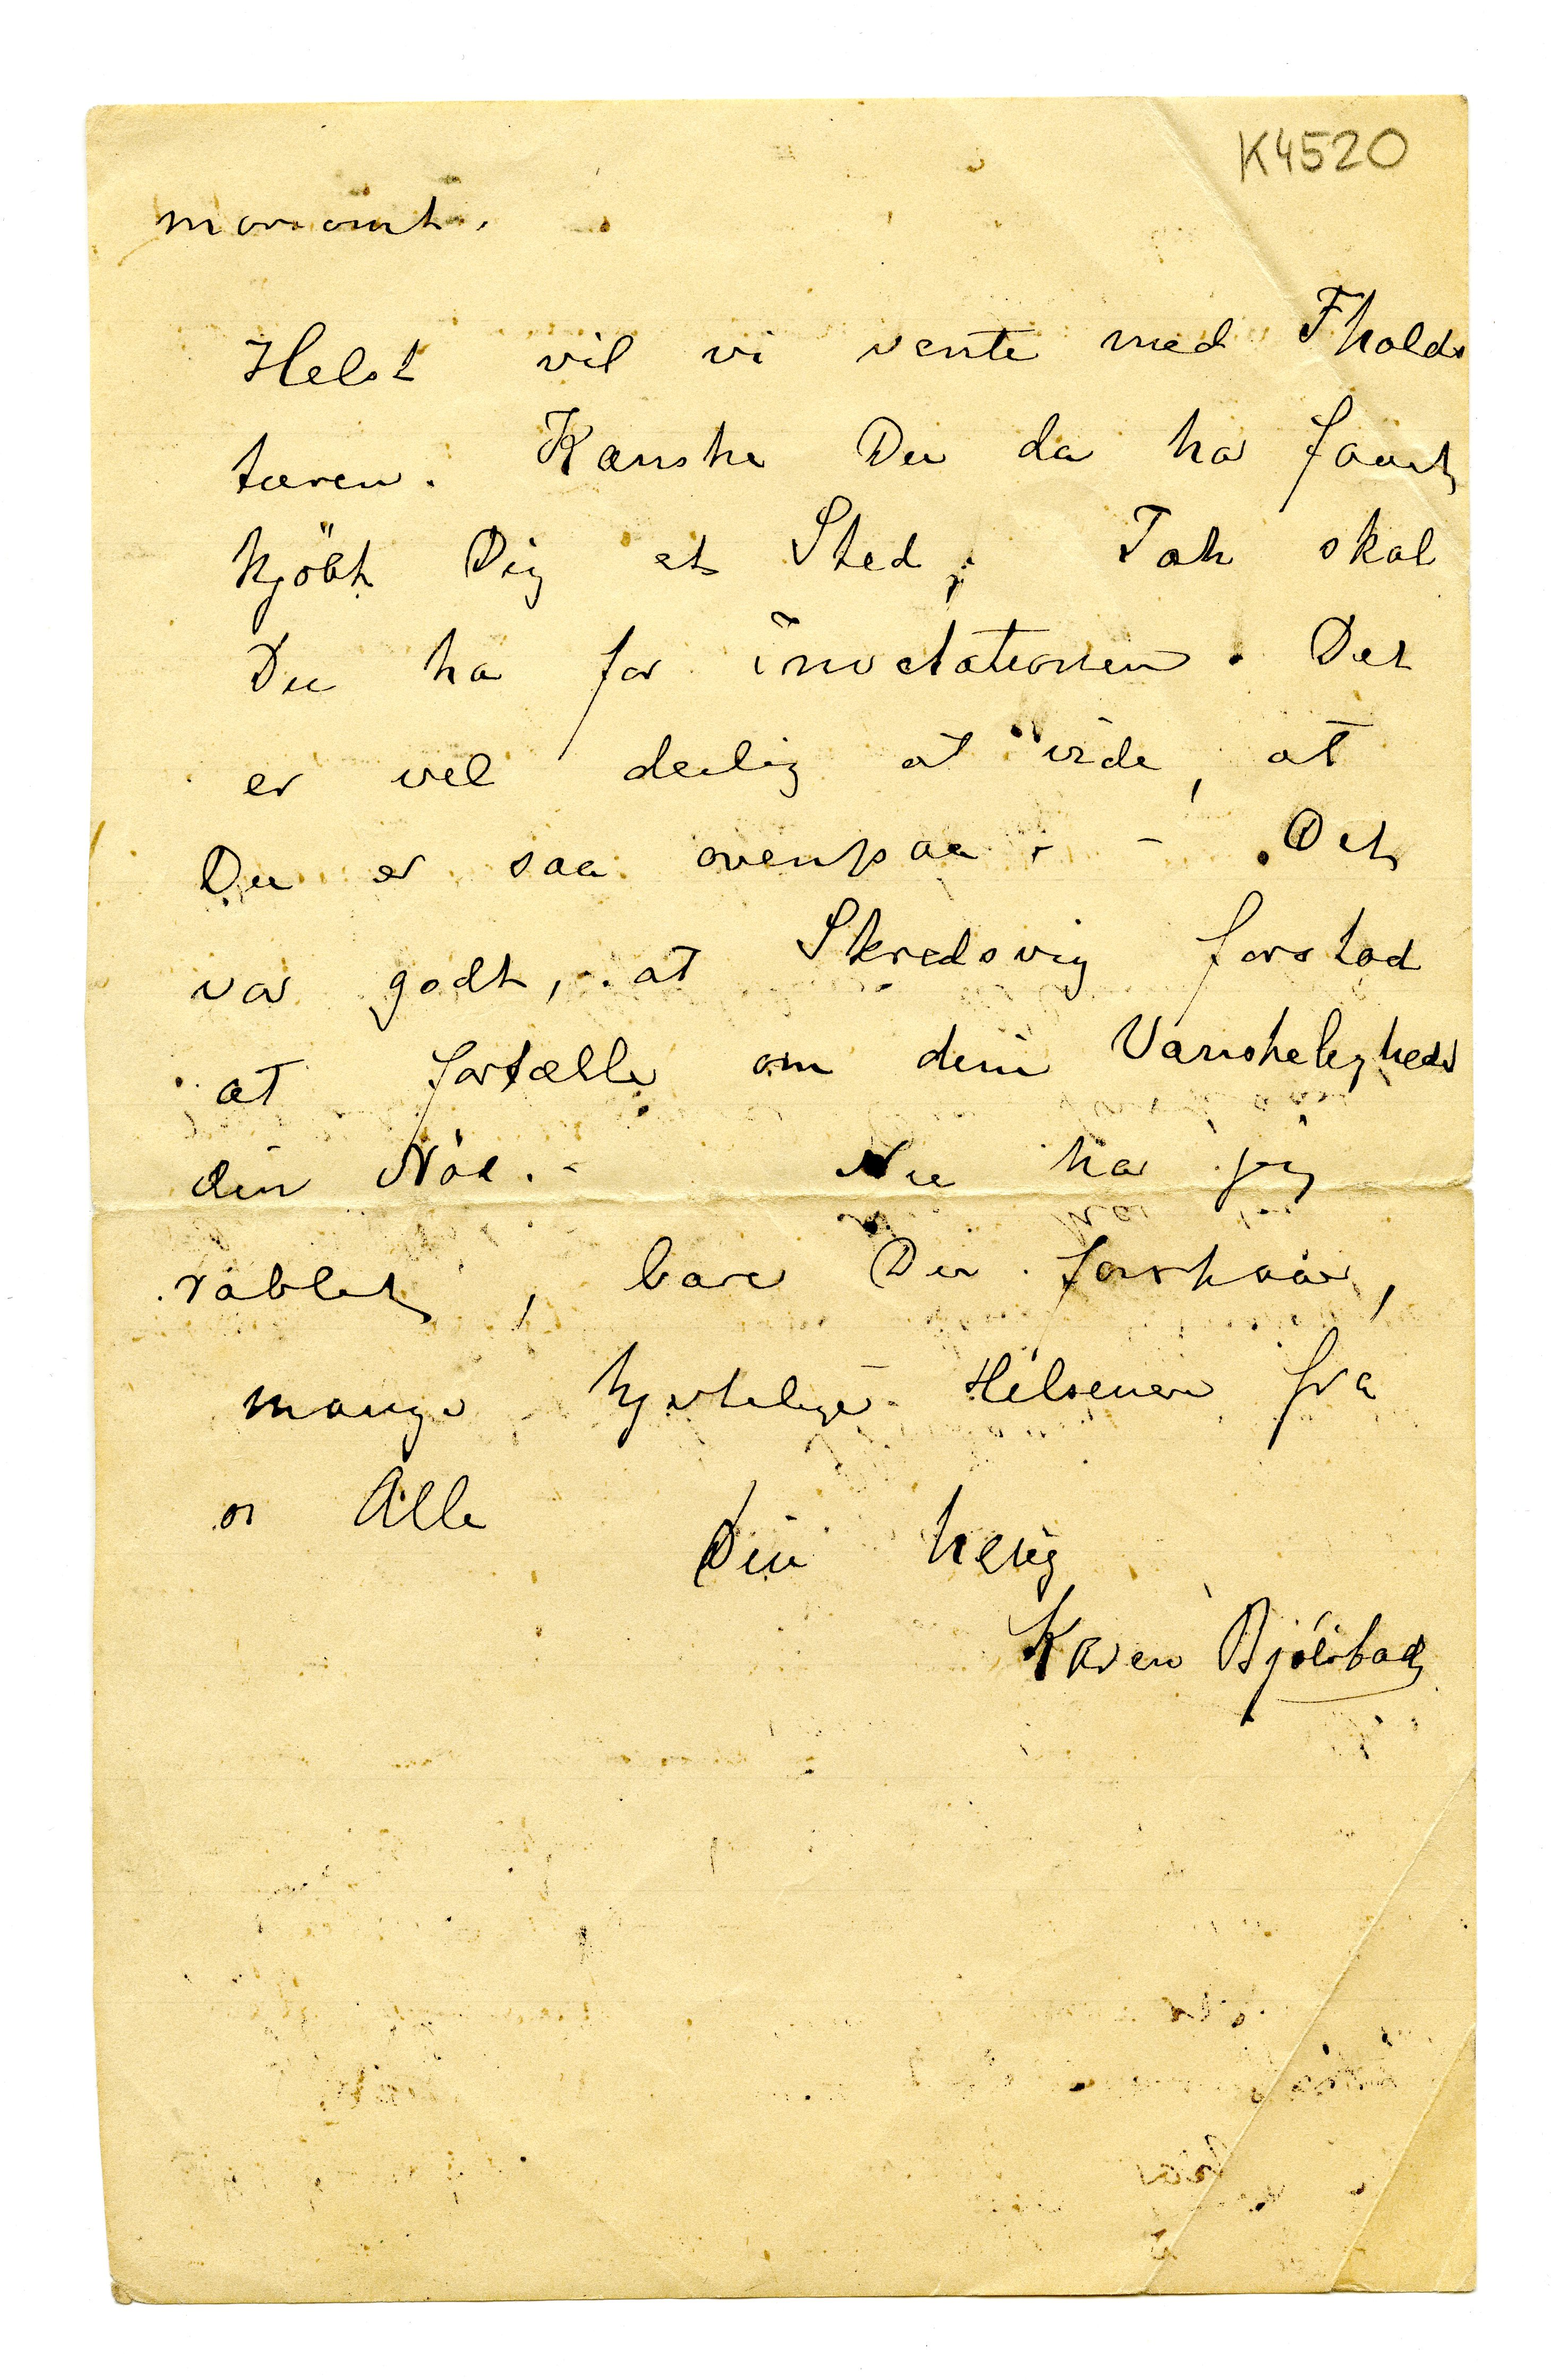 K4520
morsomt.
Helst vil vi vente med Fholds
turen. Kanske Du da ha faaet
kjöbt Dig et Sted. Tak skal
Du ha for invetationen. Det
er vel deilig at vide, at
Du er saa ovenpaa. - Det
var godt, at Skredsvig forstod
at fortælle om dine Vanskeligheder
din Nöd. - Nu har jeg
rablet, bare Du forstaar,
mange hjertelige Hilsener fra
os Alle
Din heng
Karen Bjölstad